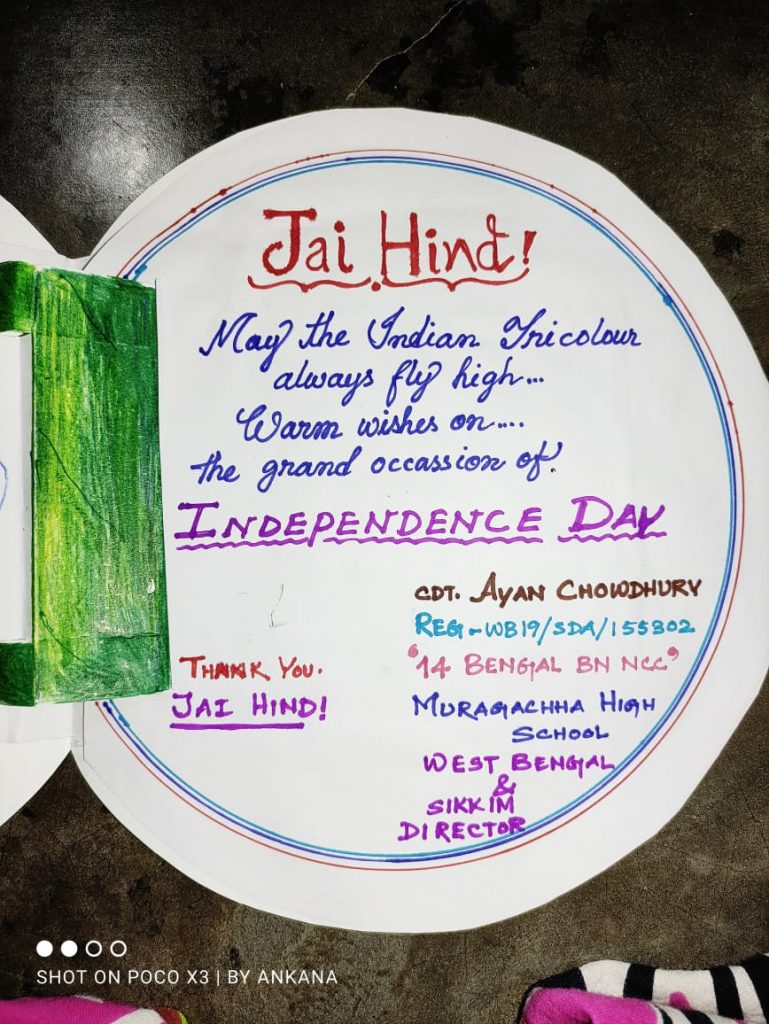 Jai Hind!
May the Indian Tricolour
always fly high...
Warm wishes on....
the grand occassion of.
INDEPENDENCE DAY
CDT. AYAN CHOWDHURY
REG - WB19/SDA/155302
"14 BENGAL BN NCC"
THANK YOU.
JAI HIND!
MURAGACHHA HIGH
SCHOOL
WEST BENGAL
&
SIKKIM
DIRECTOR
SHOT ON POCO X3 | BY ANKANA